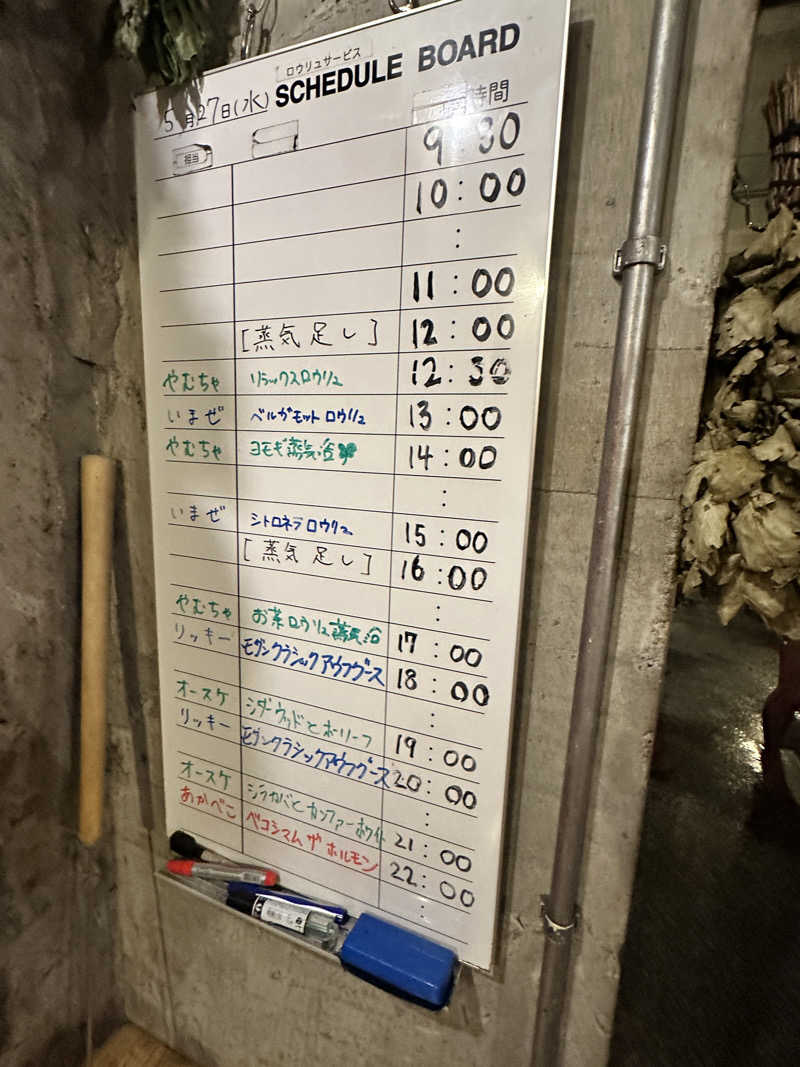 ロウリュサービス
SCHEDULE BOARD
5月27日(水)
担当 時間
9:30
10:00
:
11:00
[蒸気足し] 12:00
やむちゃ リラックスロウリュ 12:30
いまぜ ベルガモットロウリュ 13:00
やむちゃ ヨモギ蒸気浴 14:00
:
いまぜ シトロネラロウリュ 15:00
[蒸気足し] 16:00
:
やむちゃ お茶ロウリュ蒸気浴 17:00
リッキー モダンクラシックアウフグース 18:00
:
オースケ シダーウッドとホーリーフ 19:00
リッキー モダンクラシックアウフグース 20:00
:
オースケ シラカバとカンファーホワイト 21:00
あかべこ ベコシマムザホルモン 22:00
: